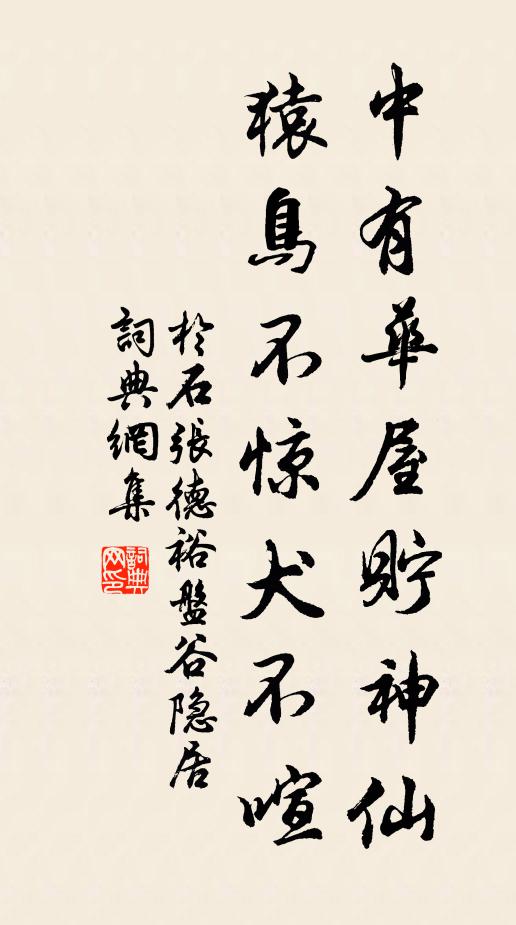 中有華屋貯神仙
猿鳥不惊犬不喧
於石張德裕盤谷隐居
詞典網集
詞典网印